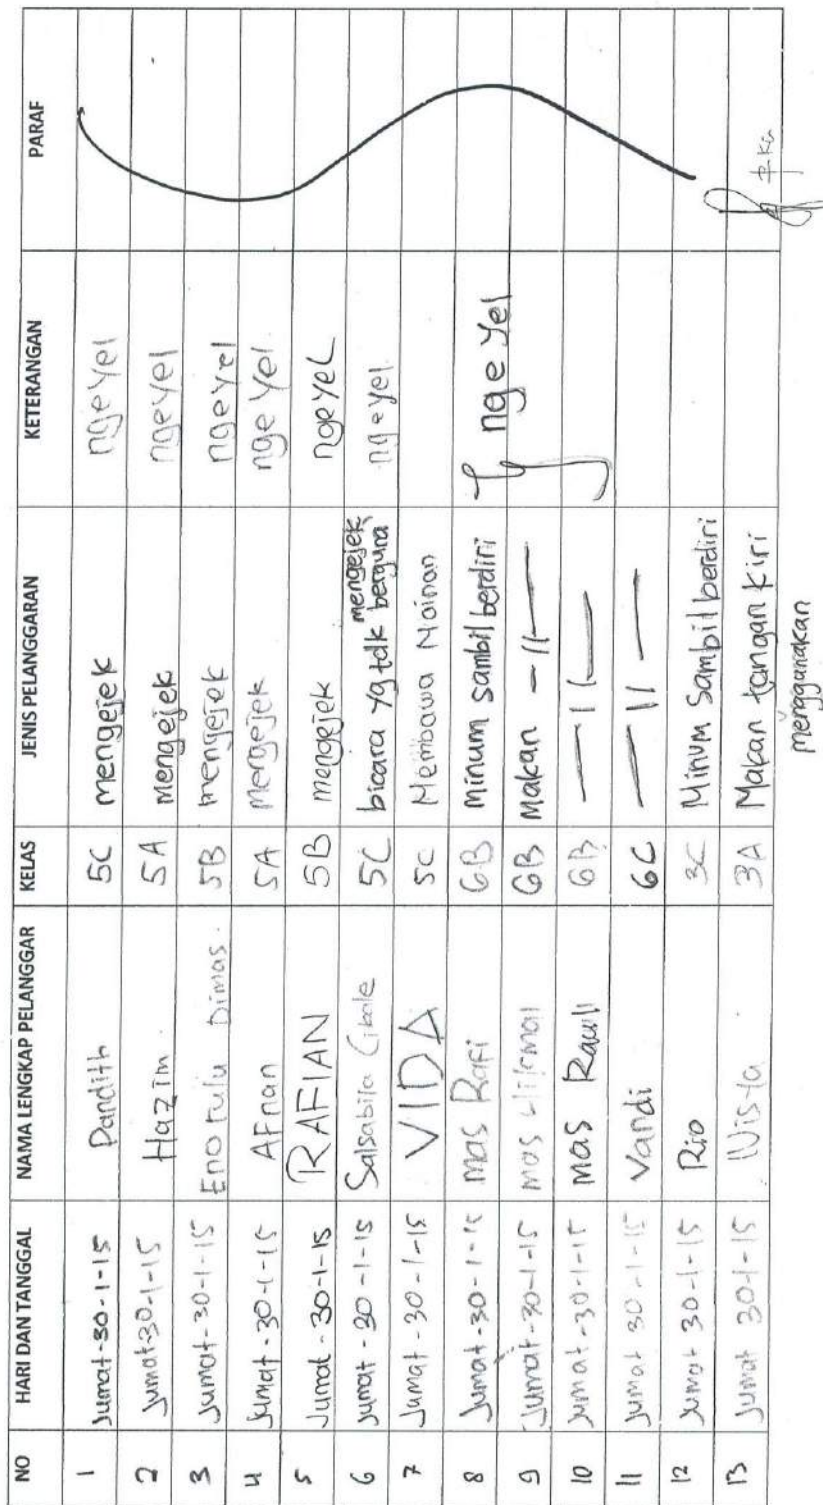 NO HARI DAN TANGGAL NAMA LENGKAP PELANGGAR KELAS JENIS PELANGGARAN KETERANGAN PARAF
1 Jumat-30-1-15 Pandith 5C mengejek ngeyel
2 Jumat-30-1-15 Hazim 5A mengejek ngeyel
3 Jumat-30-1-15 Dimas 5B mengejek ngeyel
4 Jumat-30-1-15 Afnan 5A mengejek ngeyel
5 Jumat-30-1-15 RAFIAN 5B mengejek ngeyeL
6 Jumat-30-1-15 Salsabila 5C mengejek ngeyel
bicara yg tdk berguna
7 Jumat-30-1-15 VIDA 5C Membawa Mainan
8 Jumat-30-1-15 mas Rafi 6B Minum sambil berdiri ngeyel
9 Jumat-30-1-15 mas 6B Makan -11-
10 Jumat-30-1-15 mas Rawli 6B -11-
11 Jumat 30-1-15 Vandi 6C -11-
12 Jumat 30-1-15 Rio 3C Minum Sambil berdiri
13 Jumat 30-1-15 3A Makan tangan kiri
menggunakan